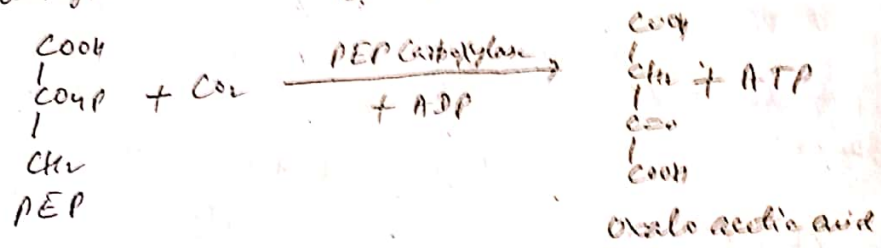 COOH
|
COHP + CO2
|
CH2
PEP
PEP Carboxylase
+ ADP
COOH
|
CH2 + ATP
|
C=O
|
COOH
Oxalo acetic acid